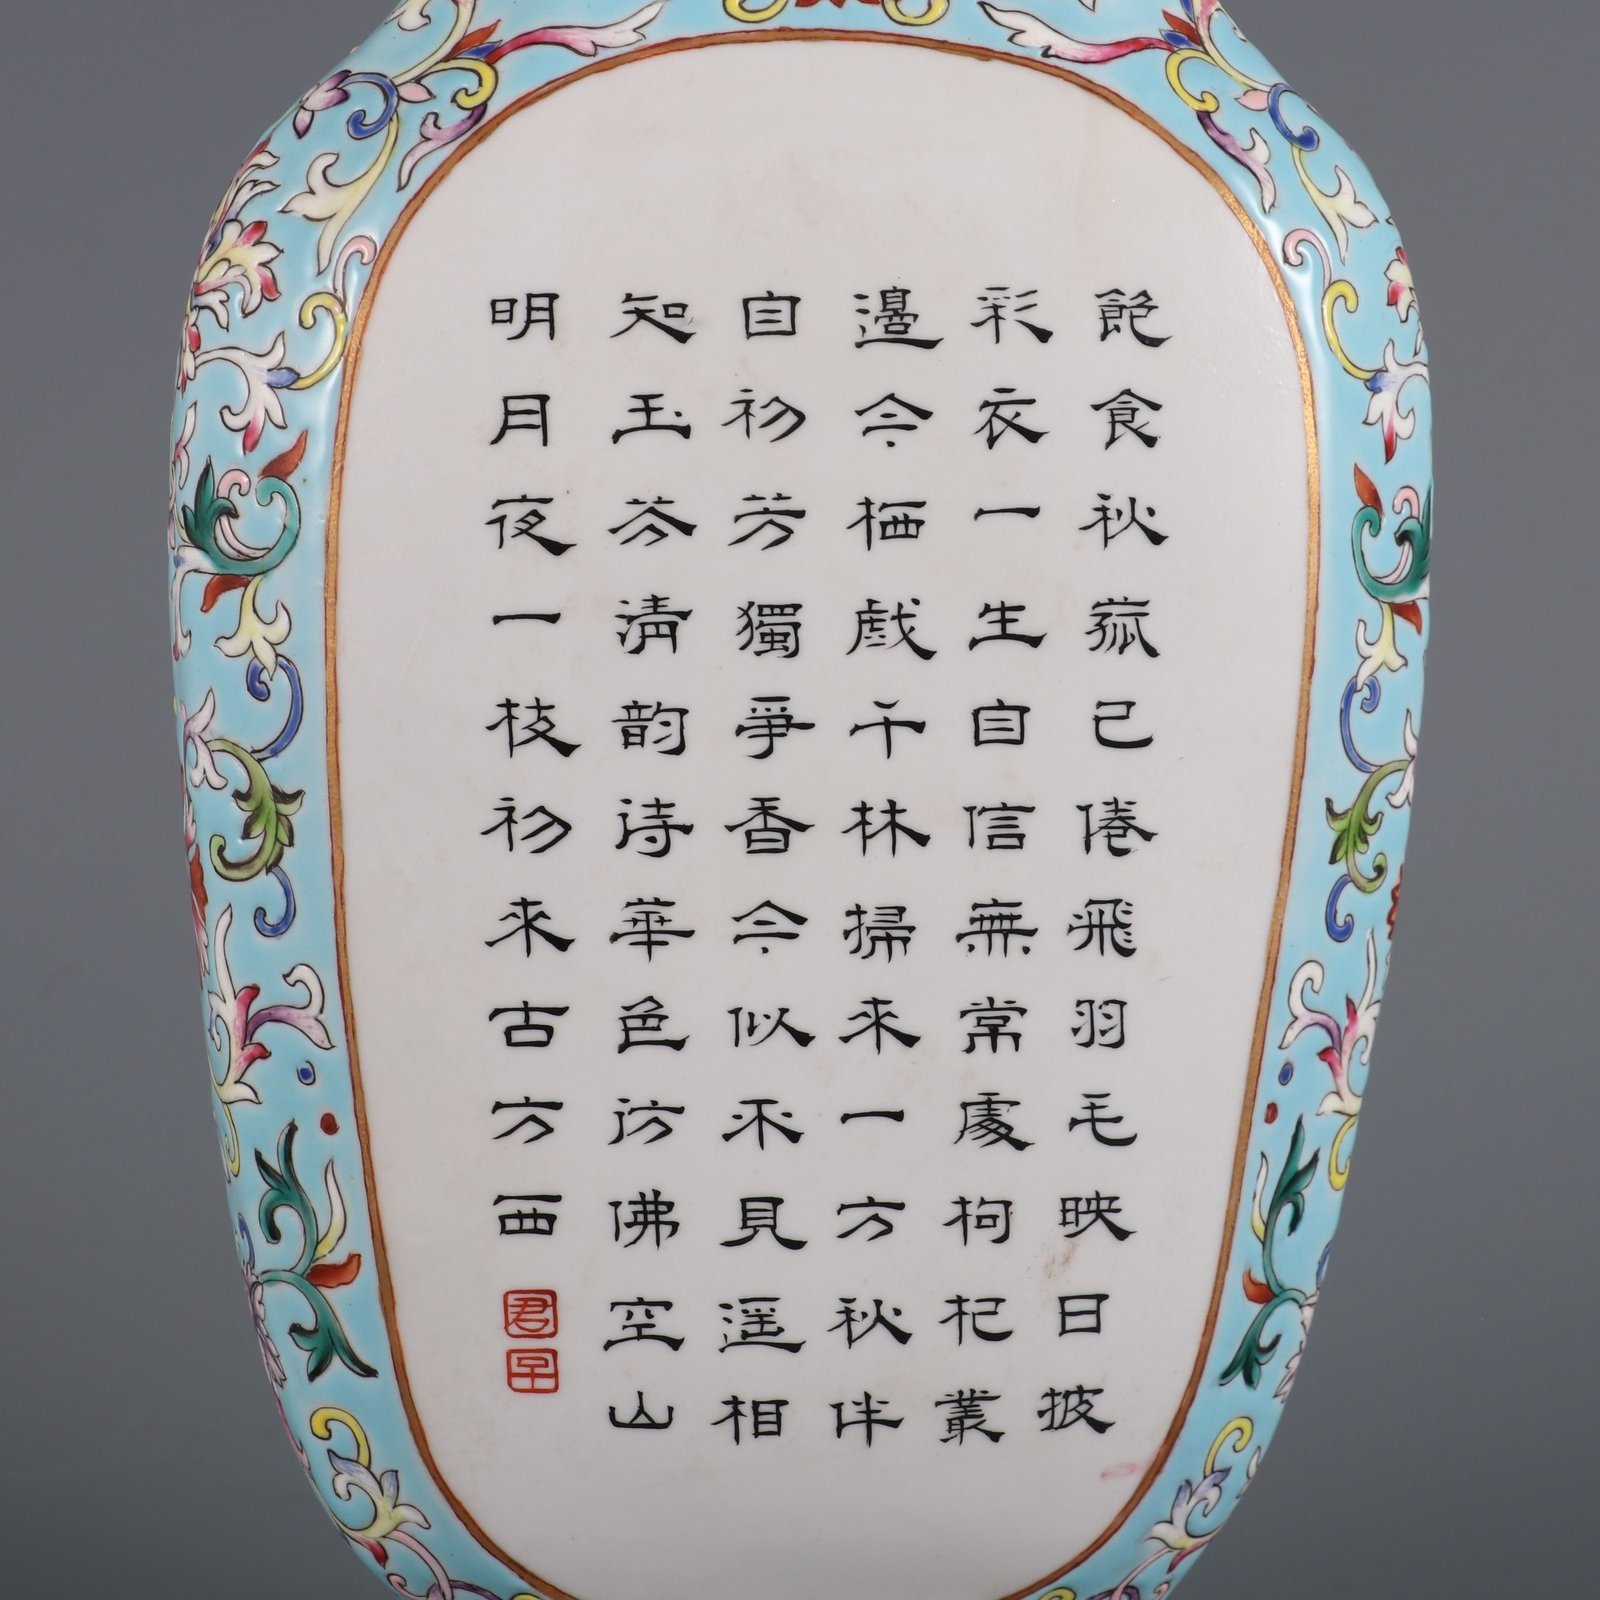 飽食秋菰已倦飛羽毛映日披
彩衣一生自信無常處枸杞叢
邊今栖戲千林掃來一方秋伴
自初芳獨爭香今似不見遥相
知玉芬淸韵诗華色访佛空山
明月夜一枝初來古方西
君